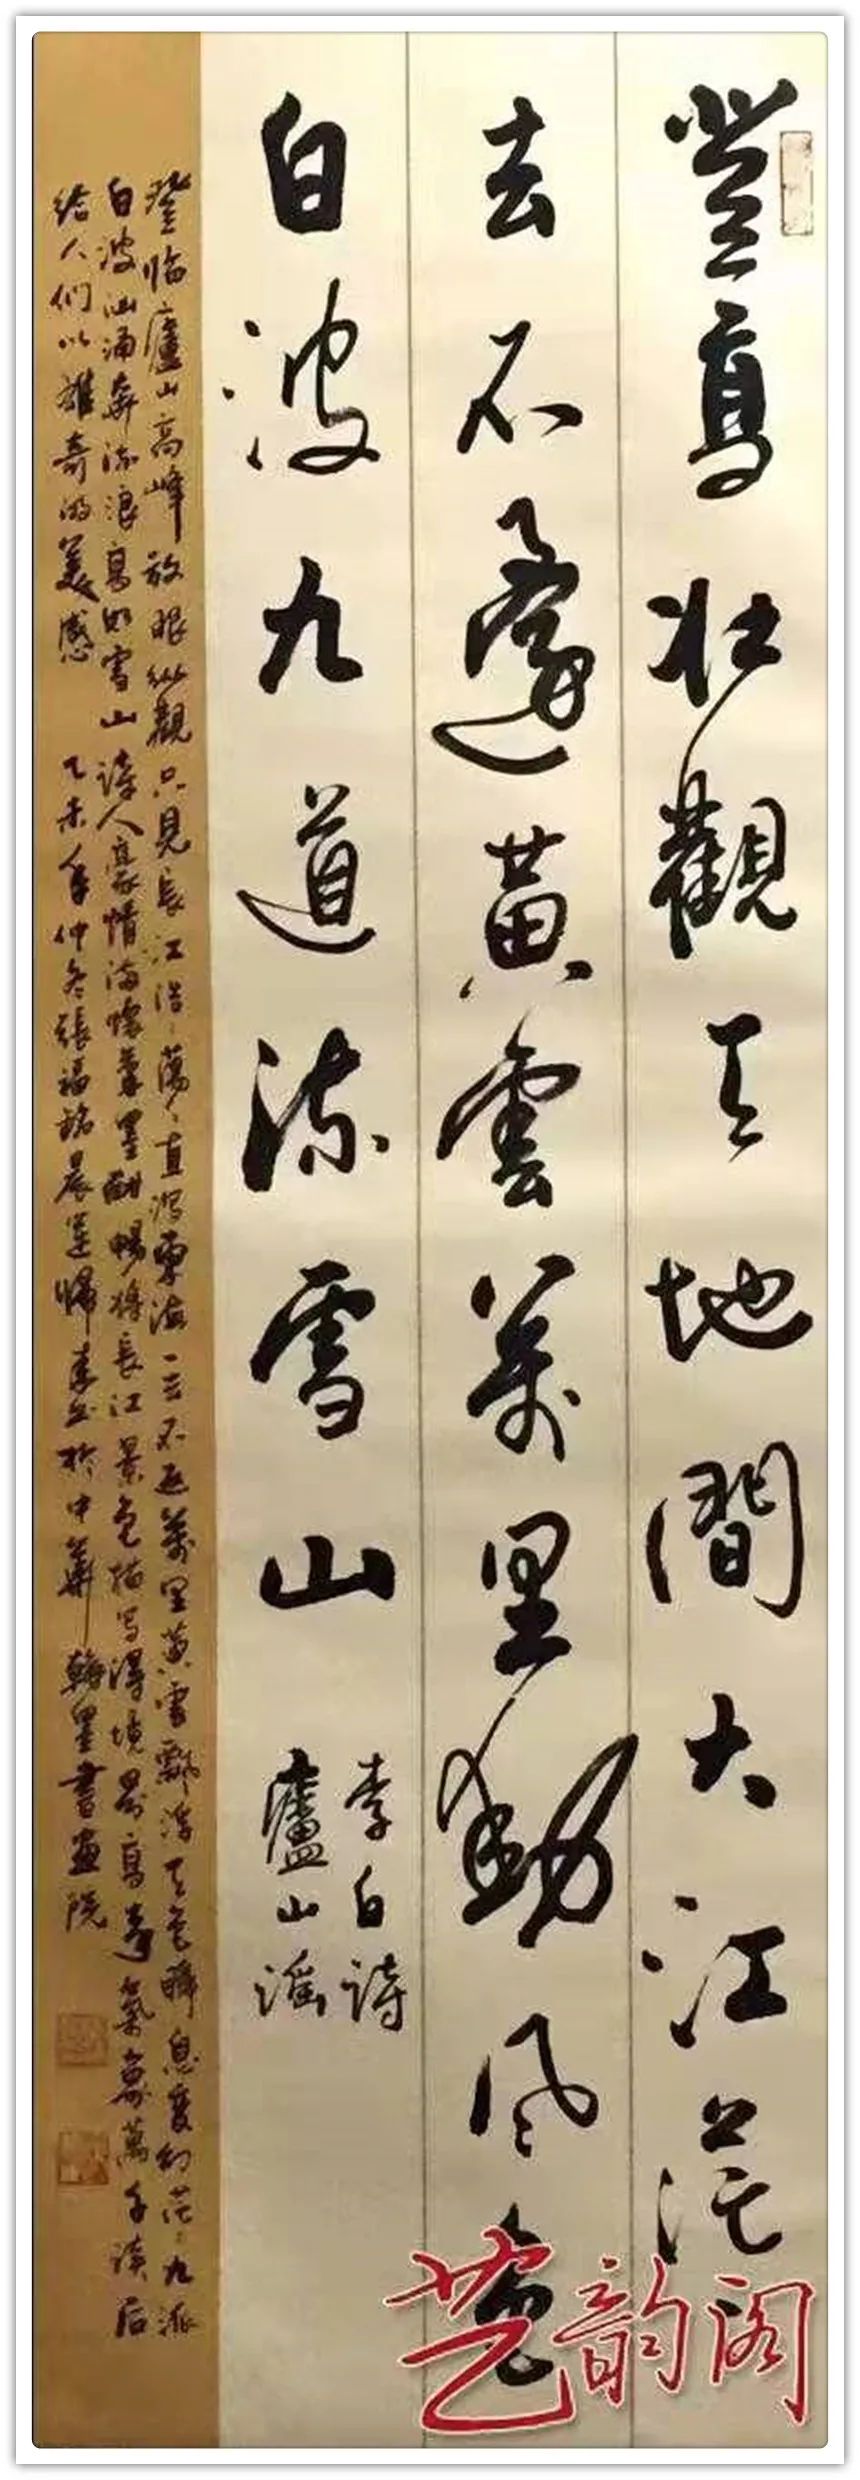 登高壯觀天地間大江茫
去不還黃雲萬里動風色
白波九道流雪山
李白詩
廬山謠
登臨廬山高峰放眼縱觀只見長江浩〻蕩〻直瀉東海一去不返萬里黃雲飄浮天色瞬息變幻茫〻九派
白波汹涌奔流浪高如雪山詩人豪情滿懷筆墨酣暢將長江景色描写得境界高奇氣象萬千读后
给人们以雄奇的美感 乙未年仲冬張福銘晨逹归来書於中華翰墨書畫院
艺韵阁